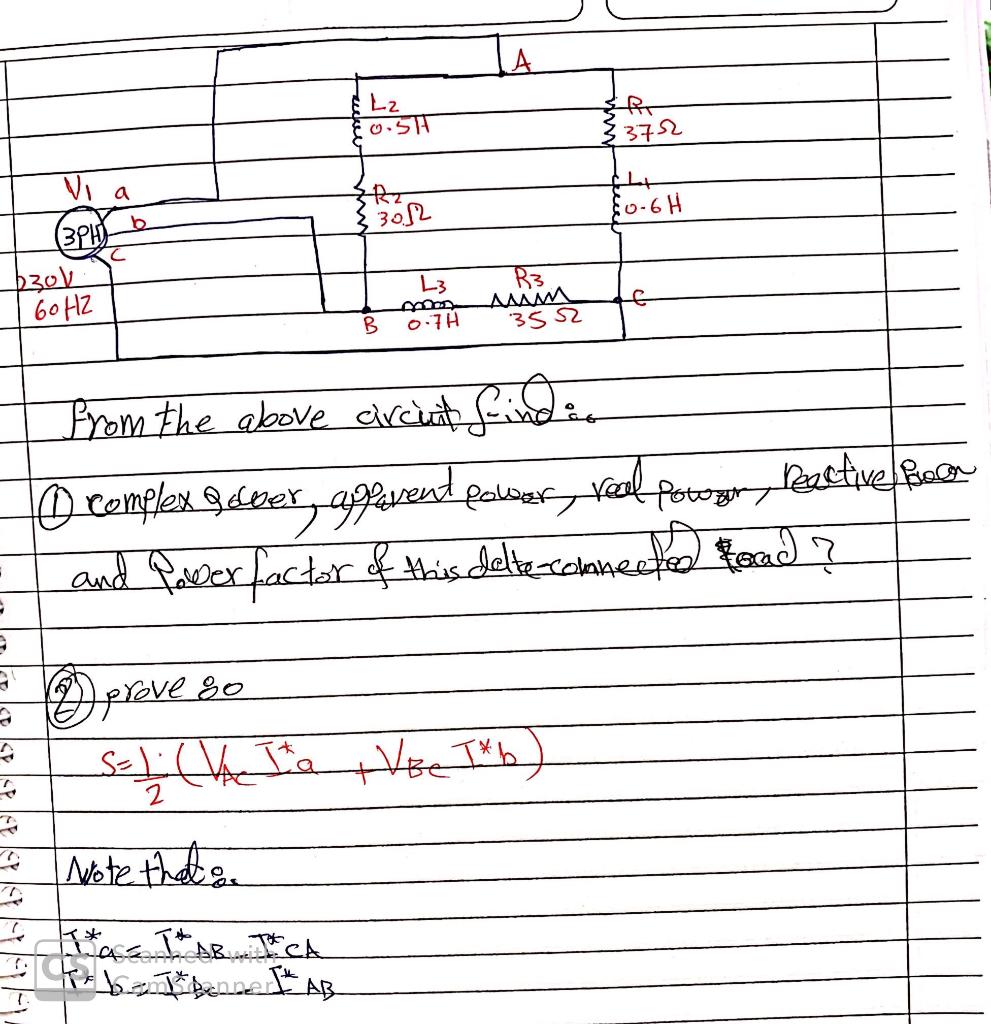 A
L2
0.5H
R1
37Ω
V1 a
R2
30Ω
L1
0.6H
3PH
b
c
230V
60HZ
L3
R3
C
B
0.7H
35Ω
from the above circuit find :-
① complex power, apparent power, real power, Reactive Power
and Power factor of this delta-connected load ?
② prove :-
S=1/2 (VAC I*a + VBC I*b)
Note that :-
I*a = I*AB - I*CA
I*b = I*BC - I*AB
CS Scanned with
CamScanner